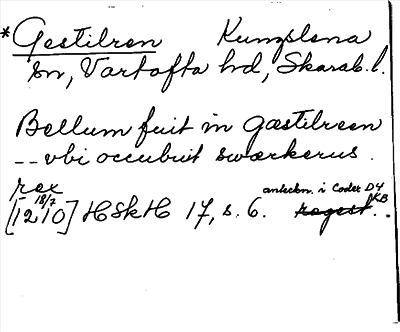 *Gestilren Kungslena
sn, Vartofta hd, Skarab. l.
Bellum fuit in Gæstilreen
-- vbi occubuit swerkerus.
rex
18/7 anteckn. i Codex D4
[1210] HSkH 17, s. 6. regest. KB